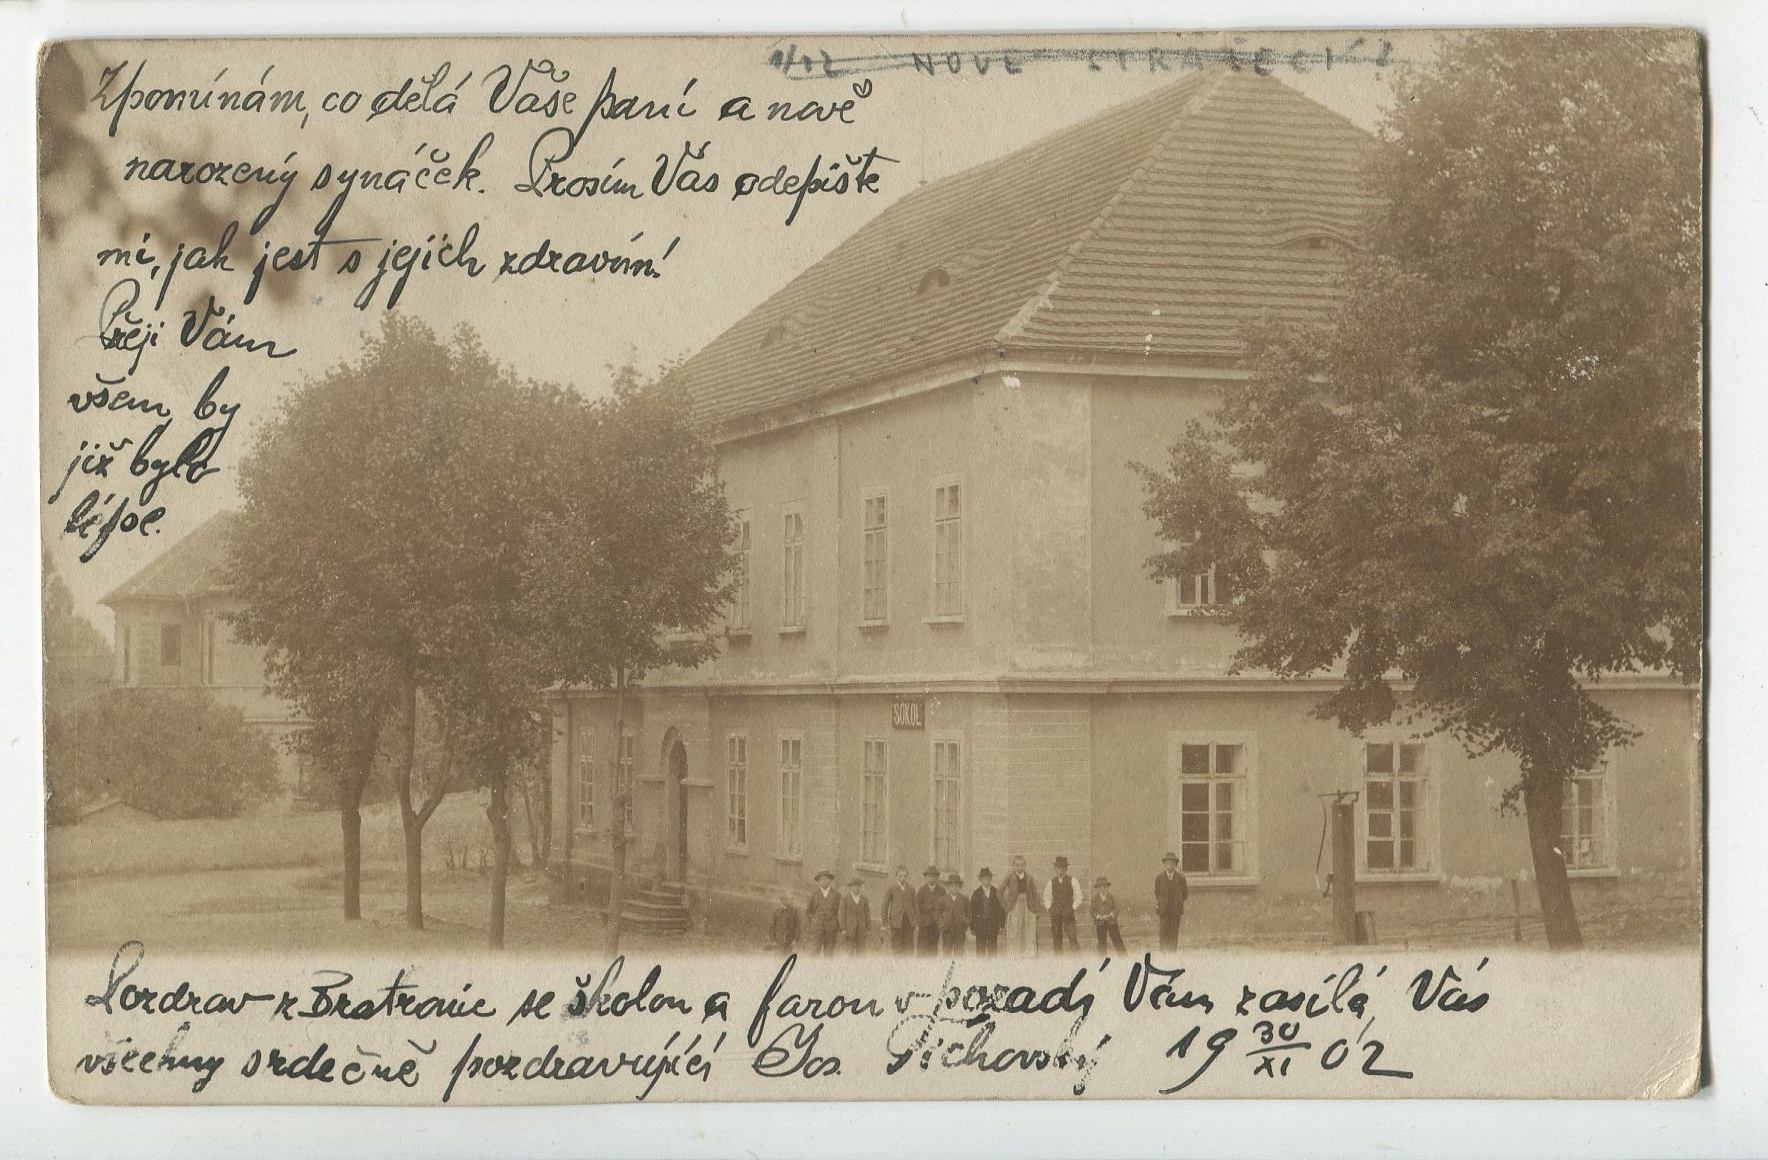 NOVÉ STRAŠECÍ?
Zpomínám, co dělá Váše paní a nově
narozený synáček. Prosím Vás odepište
mi, jak jest s jejich zdravím!
Přeji Vám
všem, by
již bylo
lépe.
SOKOL
Pozdrav z Bratronic se školou a farou v pozadí Vám zasílá, Vás
všechny srdečně pozdravující Jos. Tichovský 19 30/XI 02